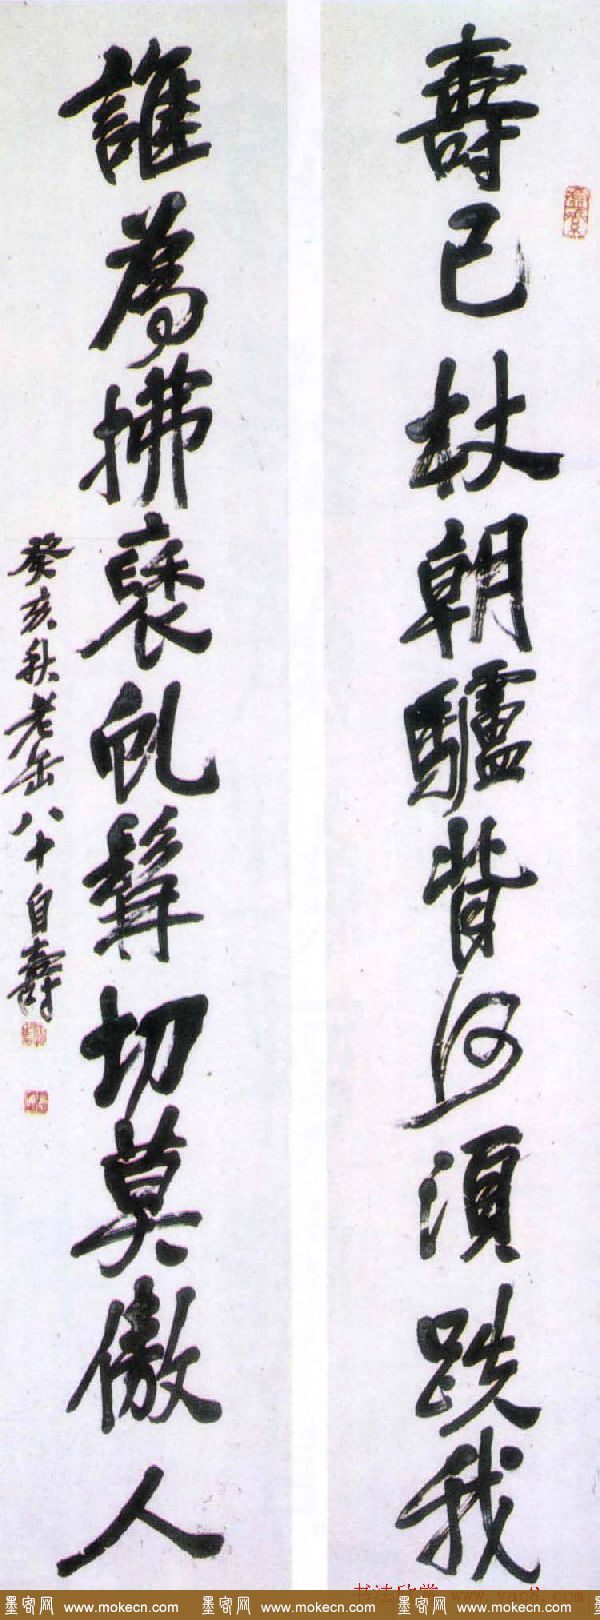 壽已杖朝驢背何須跌我
誰為拂虬髯切莫傲人
癸亥秋老缶八十自壽
书法欣 www.yac8.com
墨客网 www.mokecn.com 墨客网 www.mokecn.com 墨客网 www.mokecn.com